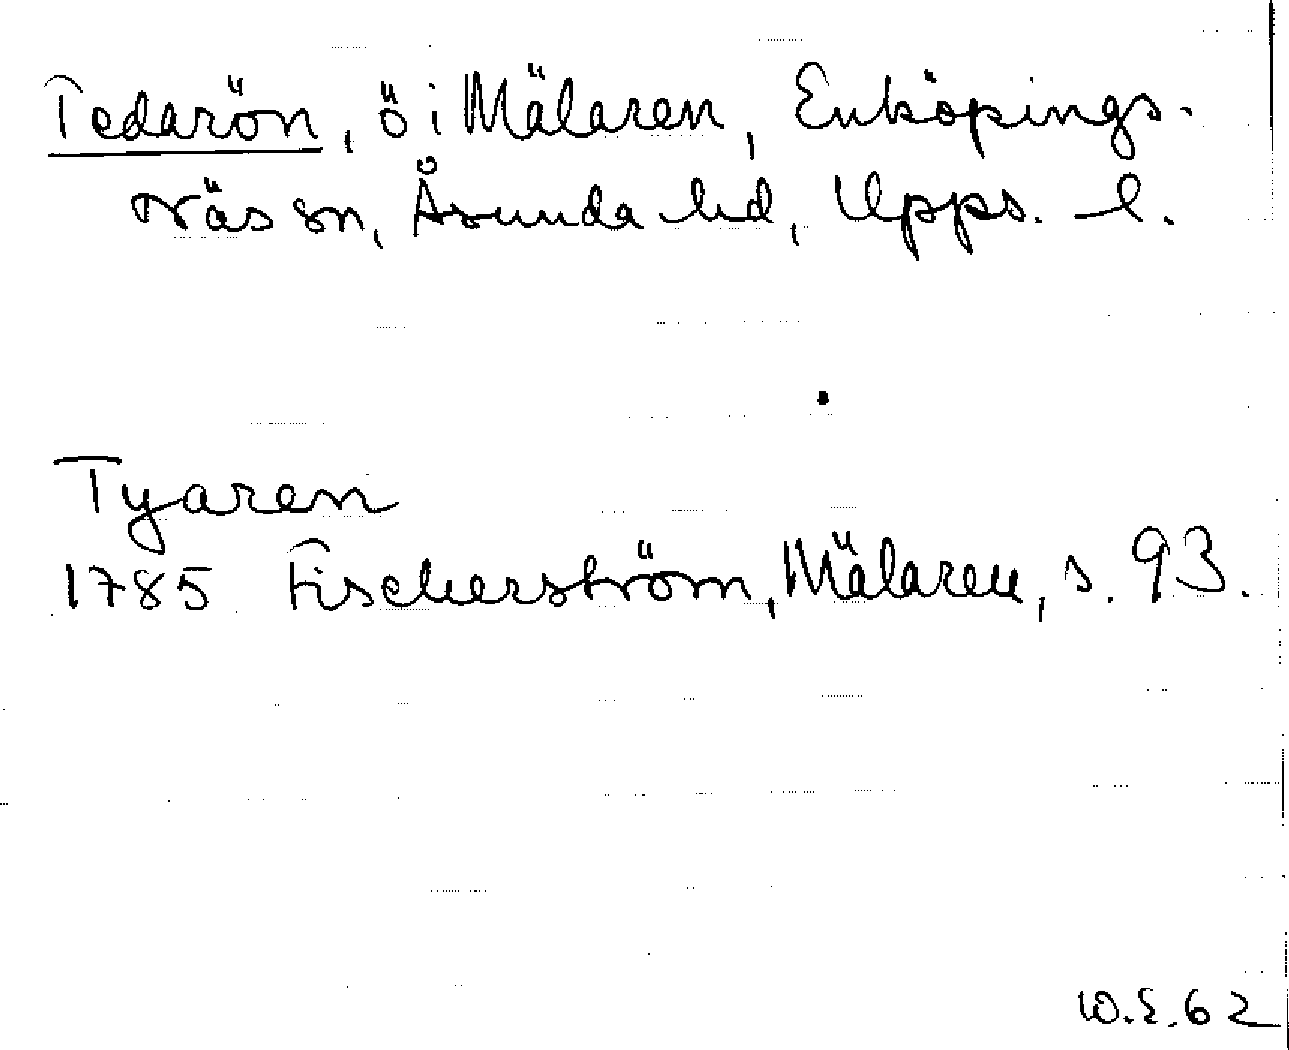 Tedarön, ö i Mälaren, Enköpings-
näs sn, Åsunda hd, Upps. l.
Tyaren
1785 Fischerström, Mälaren, s. 93.
W.E. 62